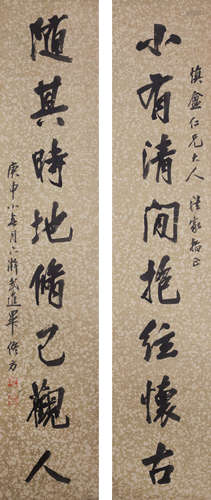 小有清閒抱絃懷古
慎盦仁兄大人法家指正
隨其時地脩己觀人
庚申小春月上澣武進畢修方